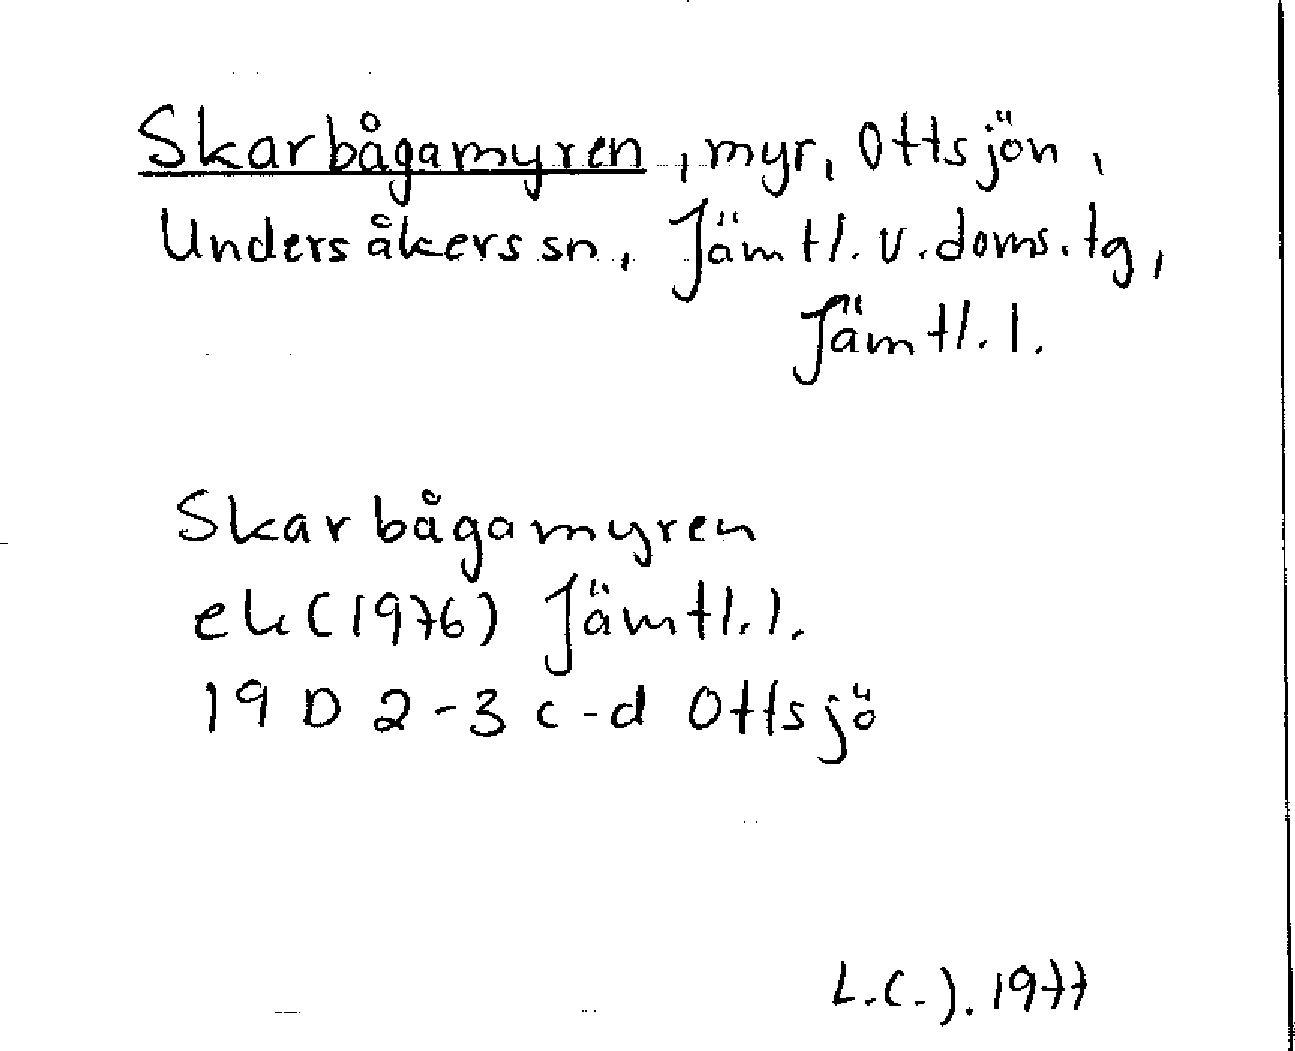 Skarbågamyren, myr, Ottsjön,
Undersåkers sn, Jämtl. v. doms. tg,
Jämtl. l.
Skarbågamyren
ek (1976) Jämtl. l.
19 D 2-3 c-d Ottsjö
1977